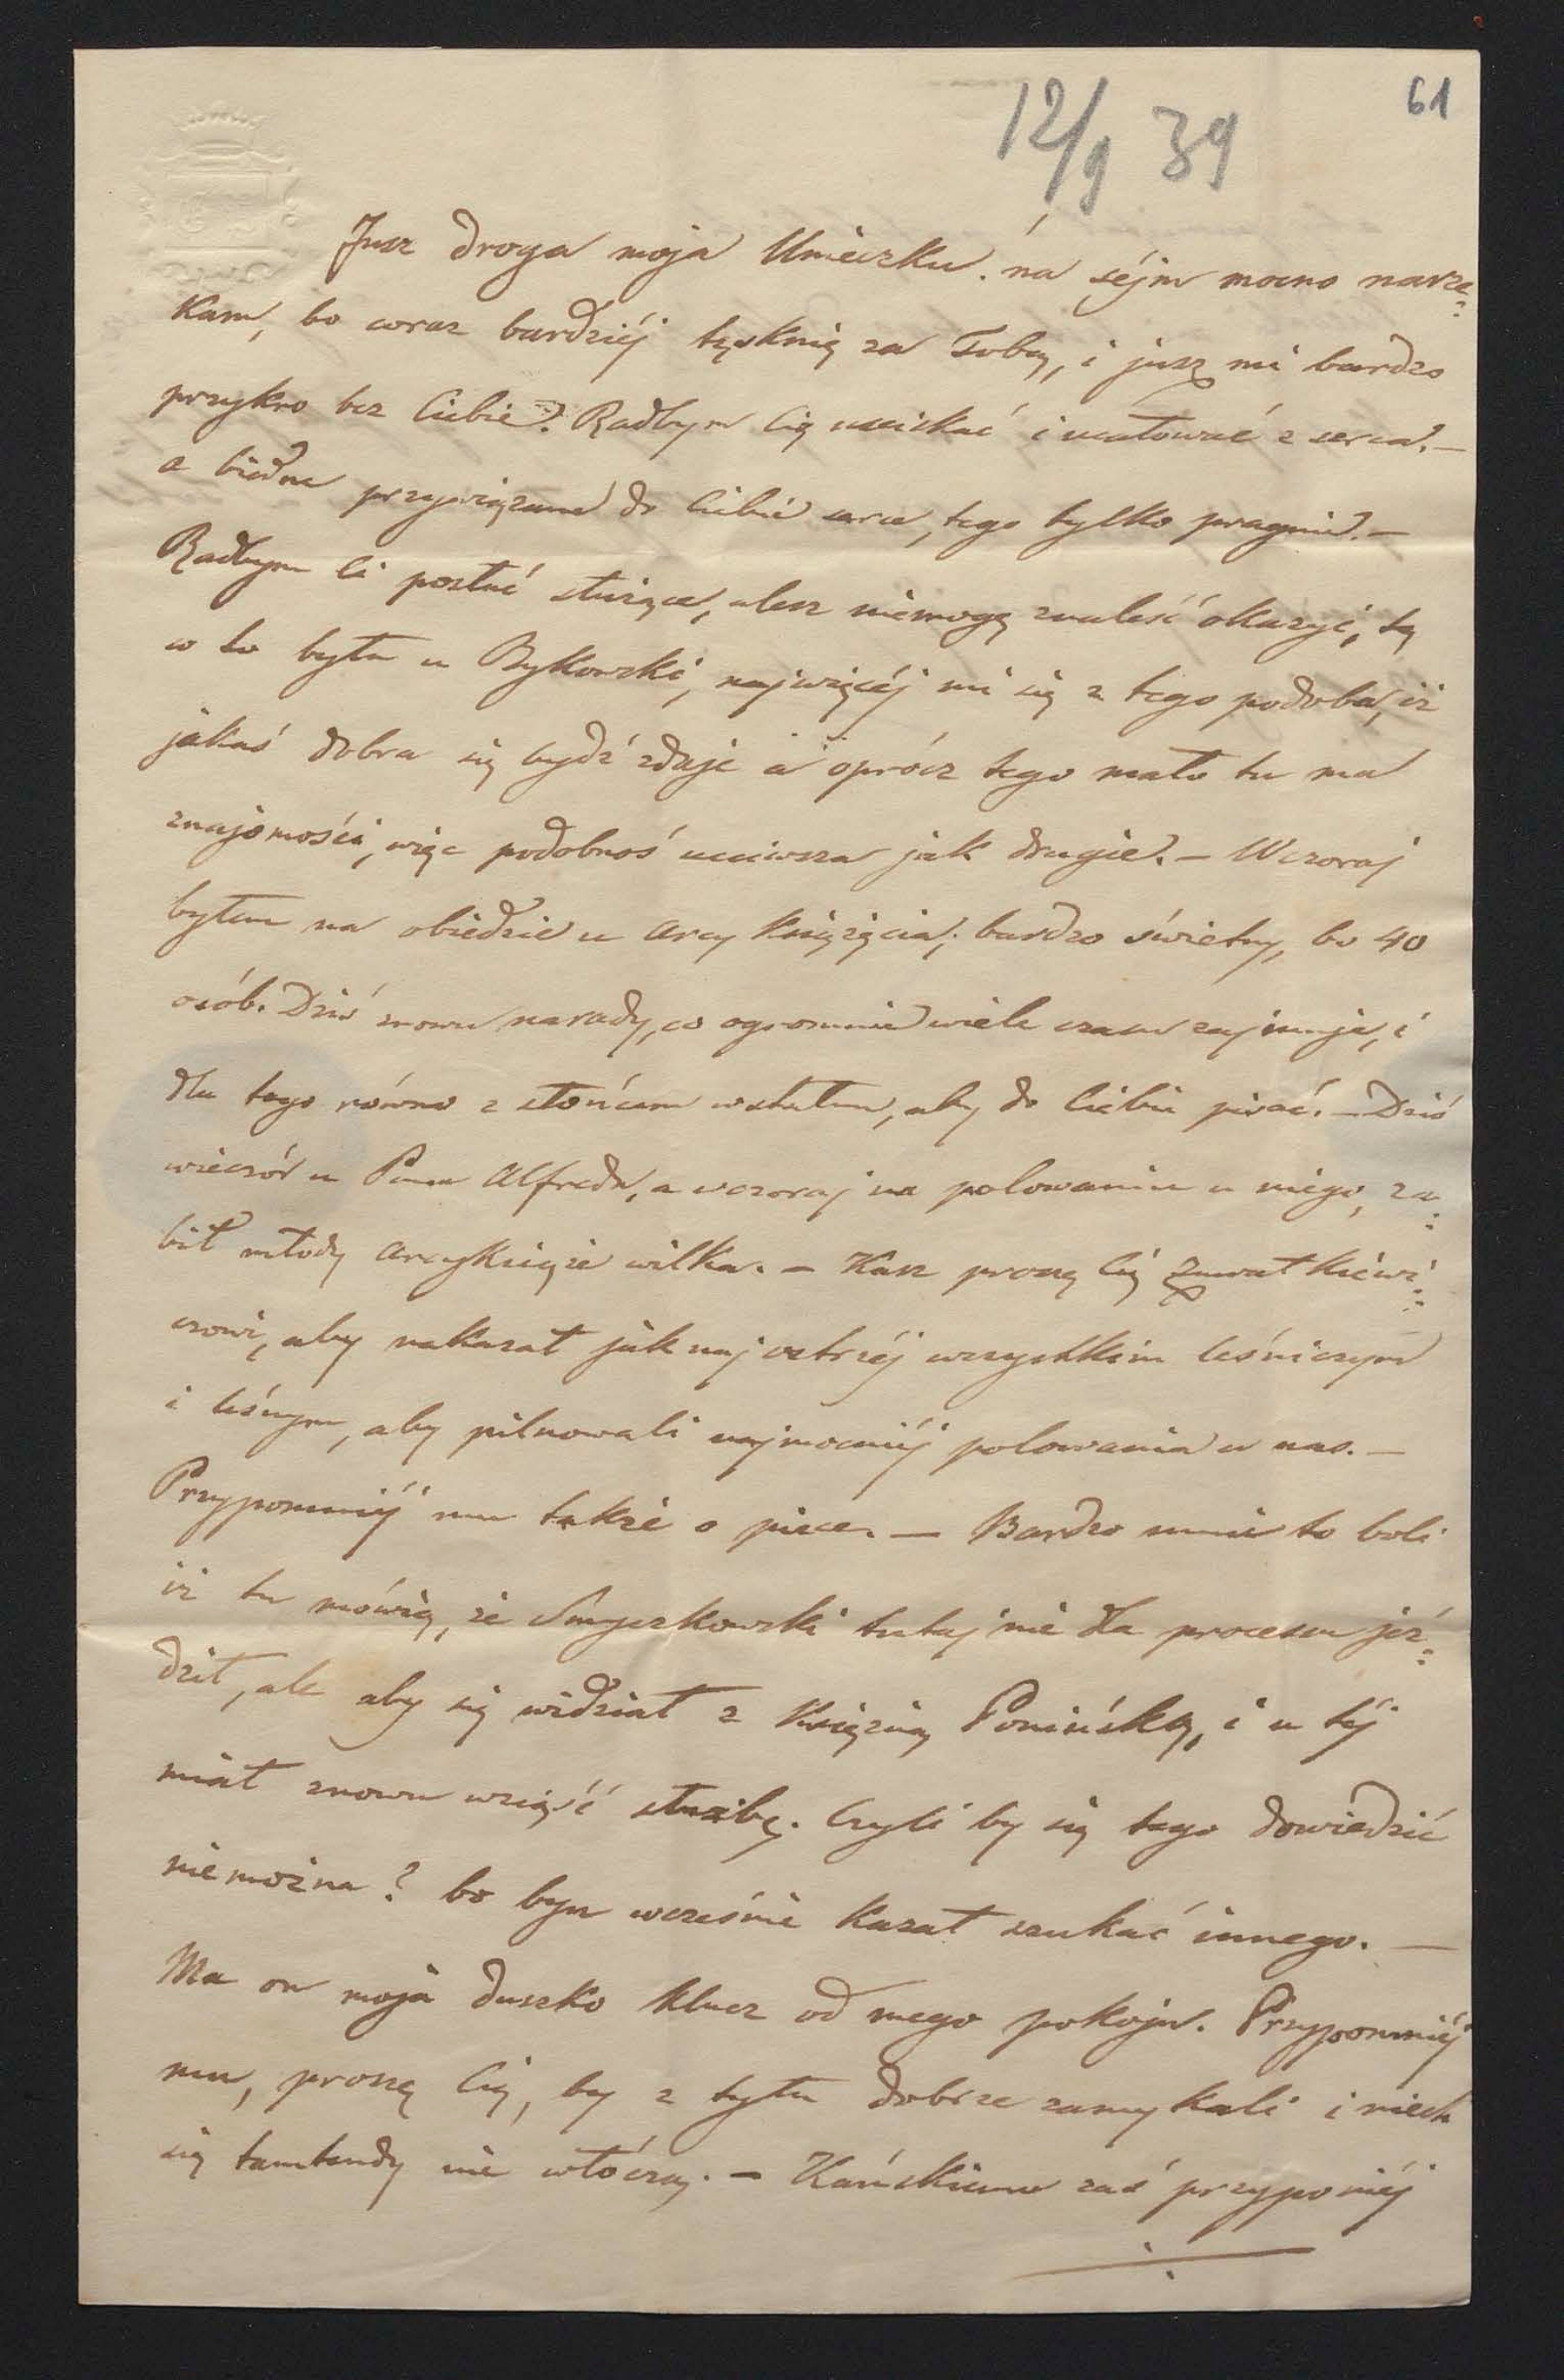 61
12/9 39
Jusz droga moja Unieczku. na séjm mocno narze=
kam, bo coraz bardziéj tęsknię za Tobą, i jusz mi bardzo
przykro bez Ciebie? Radbym Cię uściskać i ucałować z serca. –
a biedne przywiązane do Ciebie serce, tego tylko pragnie. –
Radbym Ci posłać służące, alesz niemogę znaleść okazyi, tę
co to była u Bykowski, najwięcéj mi się z tego podoba, iż
jakaś dobra się bydź zdaje a oprócz tego mało tu ma
znajomości, więc podobnoś uczciwsza jak drugie. – Wczoraj
byłem na obiedzie u arcy Księżęcia; bardzo świetny, bo 40
osób. Dziś znowu narady, co ogromnie wiele czasu zajmuje, i
dla tego równo z słońcem wstałem, aby do Ciebie pisać. – Dziś
wieczór u Pana Alfreda, a wczoraj na polowaniu u niego, za=
bił młody arcyksiąże wilka. – Kasz proszę Cię
czowi, aby nakazał jaknajostrzéj wszystkim leśniczym
i leśnym, aby pilnowali najmocniéj polowania u nas. –
Przypomniéj mu także o piece. – Bardzo mnie to boli
iż tu mówią, że Smyczkowski tutaj nie dla procesu jéź=
dził, ale aby się widział z Księżną Ponińską, i u téj
miał znowu wziąść służbę. Czyli by się tego dowiedzić
niemożna? bo bym wcześnie kazał szukać innego. –
Ma on moja duszko klucz od mego pokoju. Przypomniéj
mu, proszę Cię, by z tyłu dobrze zamykali i niech
się tamtendy nie włóczą. – Kańskiemu zaś przypomiéj